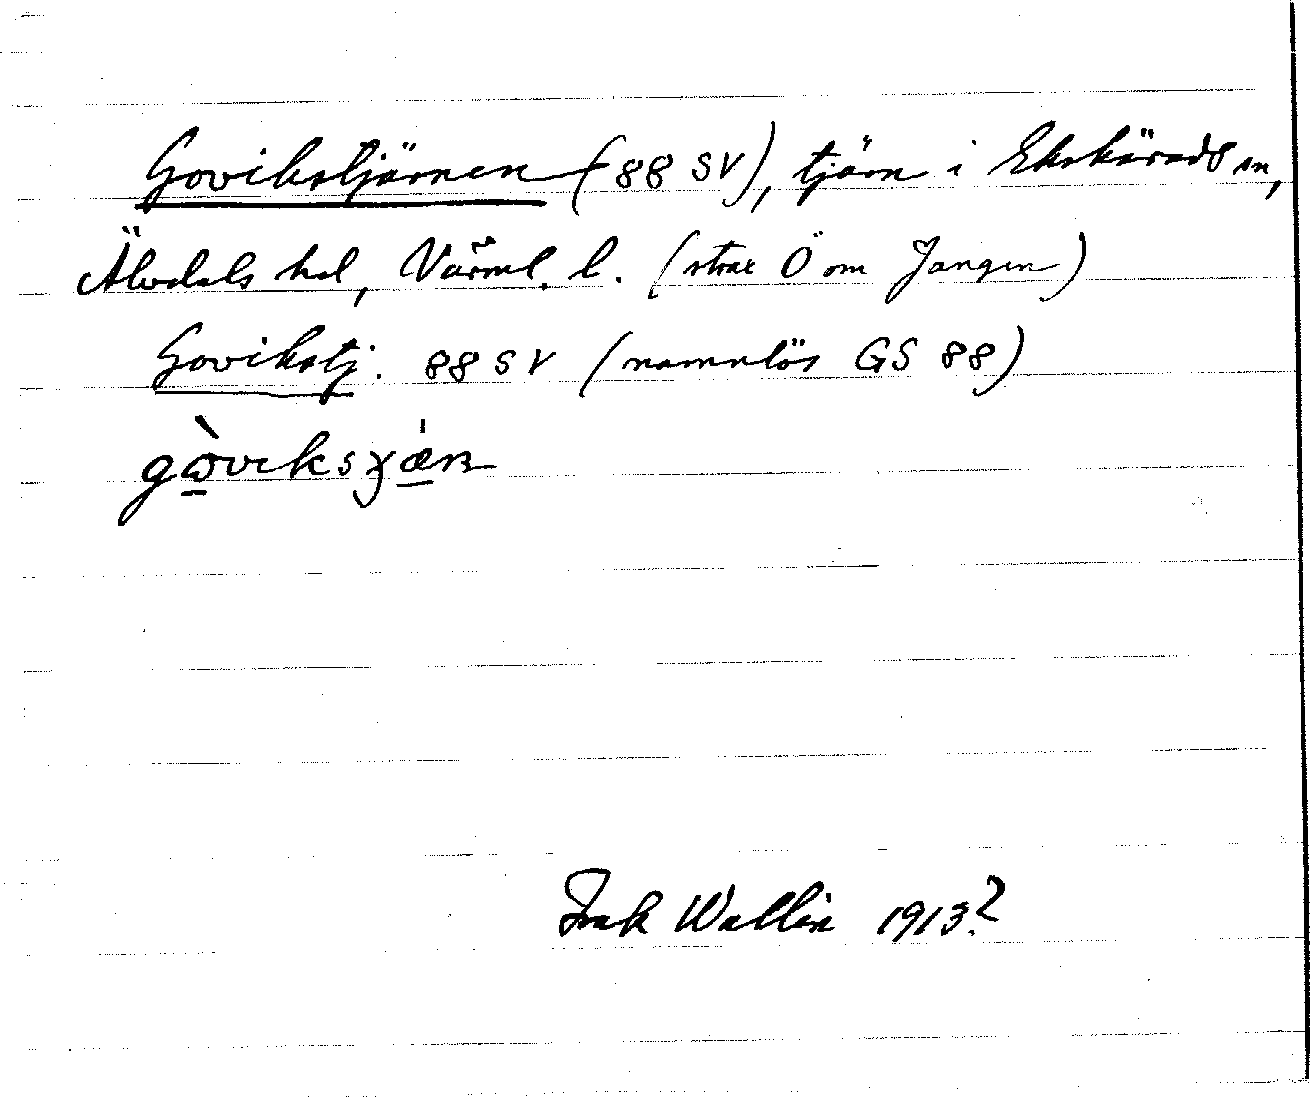 Govikstjärnen (88 SV), tjärn i Ekshärads sn,
Älvdals hd, Värml. l. (strax Ö om Jangen)
Govikstj. 88 SV (namnlös GS 88)
Wallin 1913?